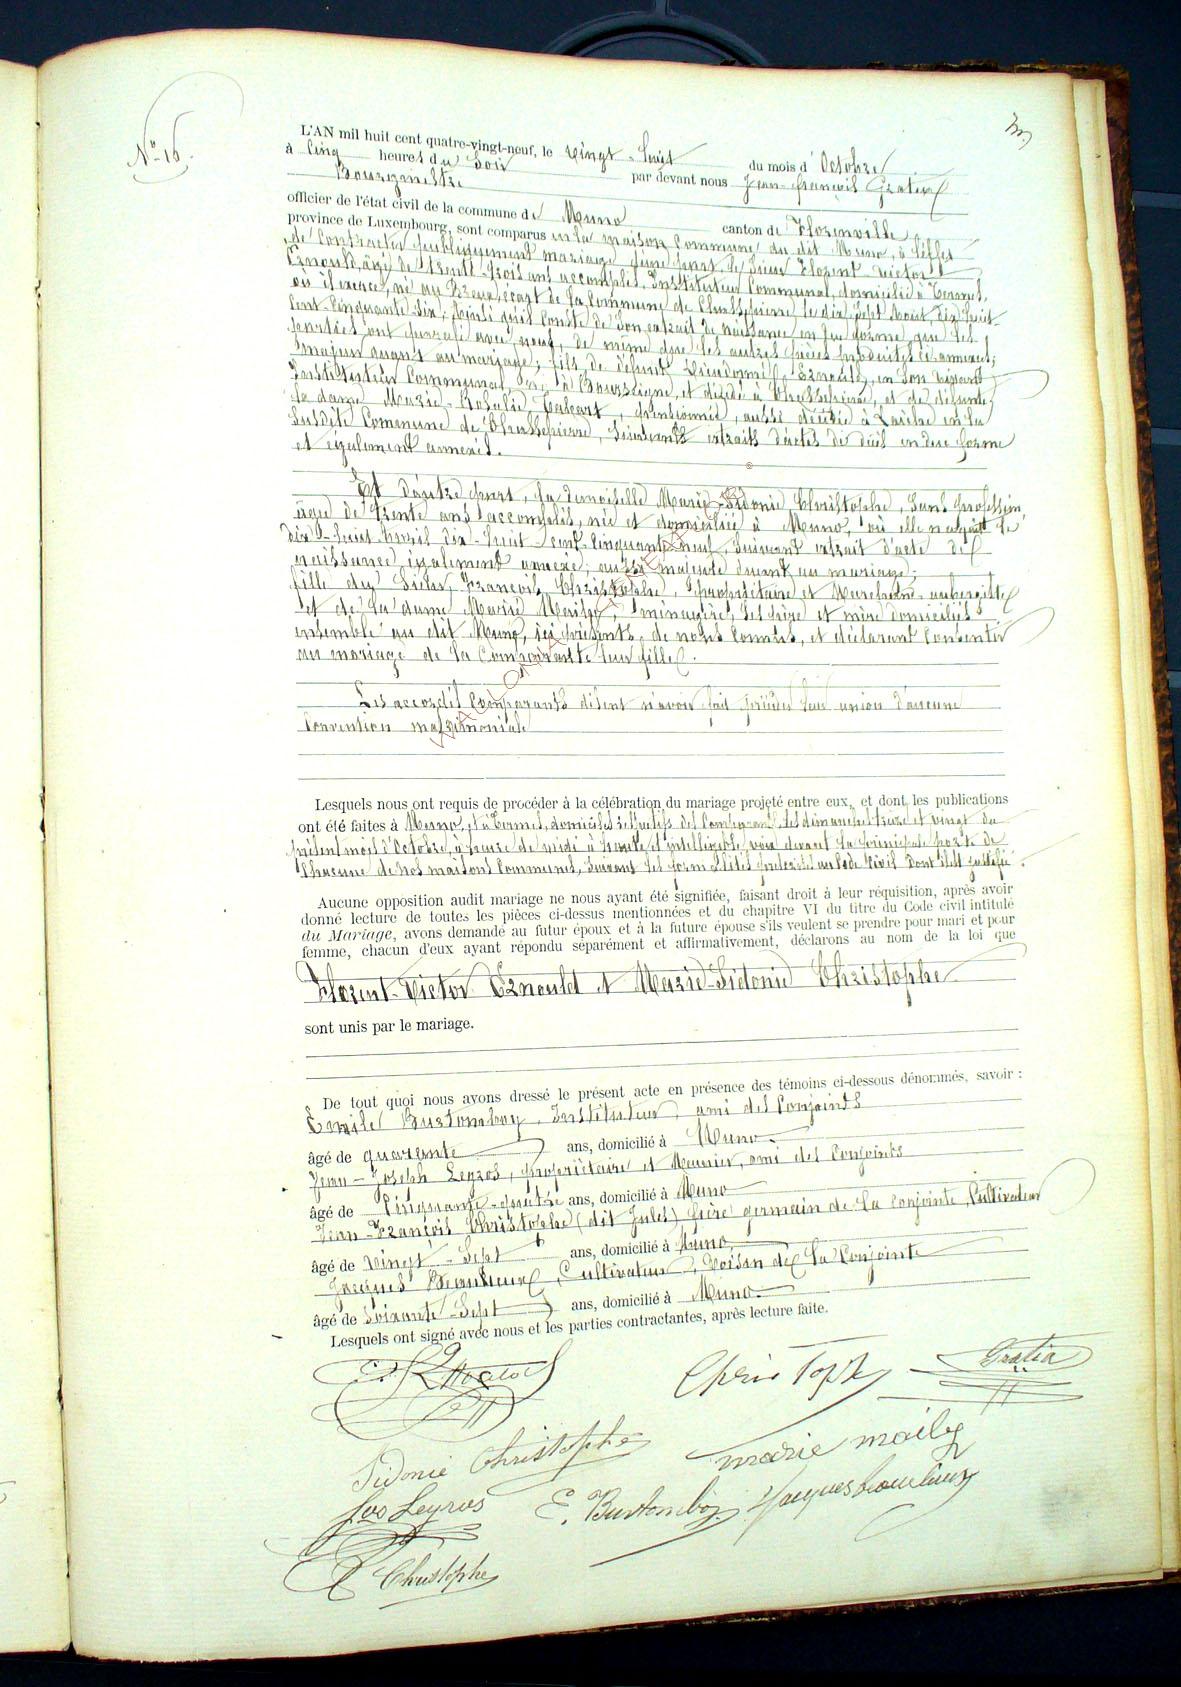 Nº 16.
L'AN mil huit cent quatre-vingt-neuf, le vingt-huit du mois d'Octobre
à cinq heures du soir par devant nous Jean-François Gratia
Bourgmestre
officier de l'état civil de la commune de Muno canton de Florenville
province de Luxembourg, sont comparus en la maison commune du dit Muno, à l'effet
de contracter publiquement mariage d'une part, le sieur Florent-Victor
Ernould, âgé de trente-trois ans accomplis, Instituteur Communal, domicilié à Termes,
où il exerce, né au écart de la Commune de Chassepierre le dix-sept Août, dix-huit-
cent-cinquante-six, ainsi qu'il conste de son extrait de naissance en due forme, que les
ont avec nous, de même que les autres pièces produites ci-annexées;
majeur quant au mariage; fils de défunt Dieudonné Ernould, en son vivant
Instituteur Communal, né à Boussigne, et décédé à Chassepierre, et de défunte
la dame Marie-Rosalie pensionnée, aussi décédée à Laiche en la
susdite Commune de Chassepierre, suivants extraits d'actes de décès en due forme
et également annexés.
Et d'autre part, la demoiselle Marie-Sidonie Christophe, sans profession,
âgée de trente ans accomplis, née et domiciliée à Muno, où elle naquit le
dix-huit Avril dix-huit-cent-cinquante-neuf, suivant extrait d'acte de
naissance également annexé; aussi majeure quant au mariage;
fille du sieur François Christophe, propriétaire et Maréchal-aubergiste
et de la dame Marie Mailly, ménagère, ses père et mère domiciliés
ensemble au dit Muno, ici présents, de nous connus, et déclarant consentir
au mariage de la Comparante leur fille.
Les accordés comparants disent n'avoir fait précéder leur union d'aucune
convention matrimoniale
Lesquels nous ont requis de procéder à la célébration du mariage projeté entre eux, et dont les publications
ont été faites à Muno, et à Termes, domiciles respectifs des comparants, les dimanches treize et vingt du
présent mois d'Octobre, à l'heure de midi à haute et intelligible voix devant la principale porte de
chacune de nos maisons communes, suivant les formalités prescrites au Code civil dont il est justifié.
Aucune opposition audit mariage ne nous ayant été signifiée, faisant droit à leur réquisition, après avoir
donné lecture de toutes les pièces ci-dessus mentionnées et du chapitre VI du titre du Code civil intitulé
du Mariage, avons demandé au futur époux et à la future épouse s'ils veulent se prendre pour mari et pour
femme, chacun d'eux ayant répondu séparément et affirmativement, déclarons au nom de la loi que
Florent-Victor Ernould et Marie-Sidonie Christophe
sont unis par le mariage.
De tout quoi nous avons dressé le présent acte en présence des témoins ci-dessous dénommés, savoir :
Emile Burtomboy, Instituteur, ami des conjoints
âgé de quarante ans, domicilié à Muno
Jean-Joseph Legros, propriétaire et Meunier, ami des conjoints
âgé de cinquante-quatre ans, domicilié à Muno
Jean-François Christophe (dit Jules) frère germain de la conjointe, Cultivateur
âgé de vingt-sept ans, domicilié à Muno
Jacques Beaulieux, Cultivateur, Voisin de la Conjointe
âgé de soixante-sept ans, domicilié à Muno
Lesquels ont signé avec nous et les parties contractantes, après lecture faite.
Christophe
Gratia
Sidonie Christophe
marie mailly
Jos Legros
E. Burtomboy
Jacques beaulieux
Christophe